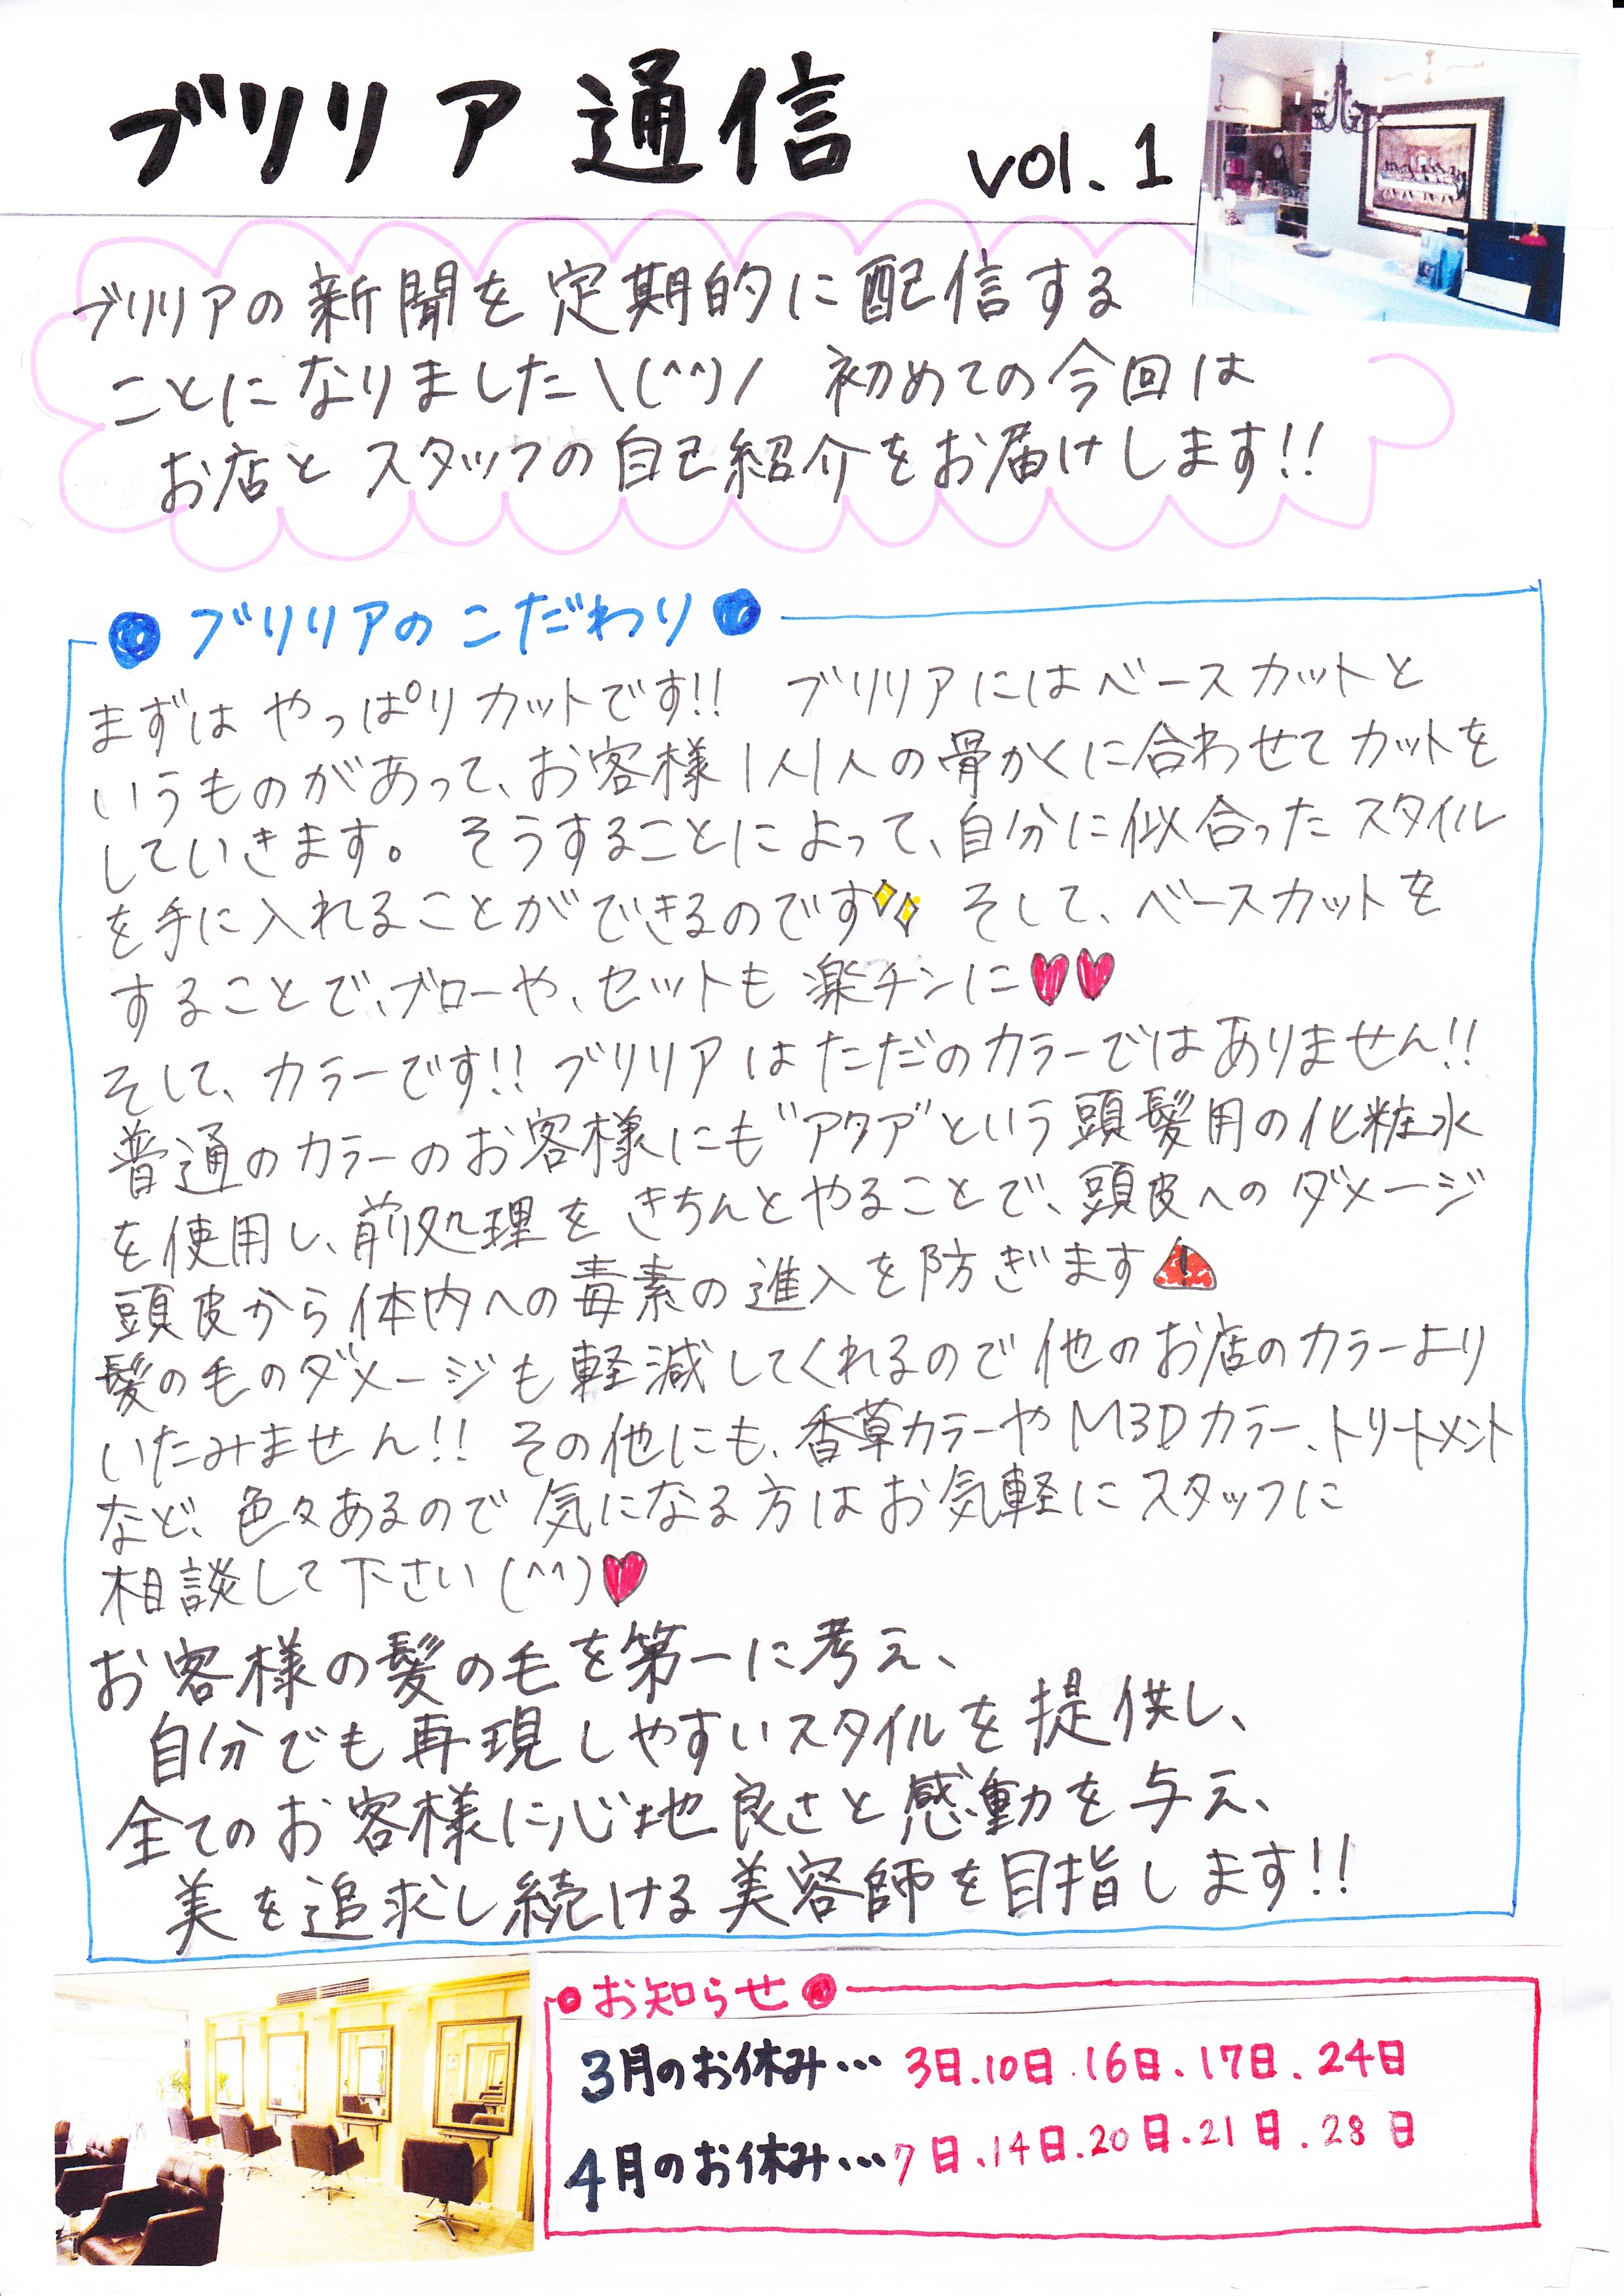 ブリリア通信 vol.1
ブリリアの新聞を定期的に配信する
ことになりました\(^^)/ 初めての今回は
お店とスタッフの自己紹介をお届けします!!
ブリリアのこだわり
まずはやっぱりカットです!! ブリリアにはベースカットと
いうものがあって、お客様1人1人の骨かくに合わせてカットを
していきます。そうすることによって、自分に似合ったスタイル
を手に入れることができるのです そして、ベースカットを
することで、ブローや、セットも楽チンに♥♥
そして、カラーです!! ブリリアはただのカラーではありません!!
普通のカラーのお客様にも"アクア"という頭髪用の化粧水
を使用し、前処理をきちんとやることで、頭皮へのダメージ
頭皮から体内への毒素の進入を防ぎます⚠
髪の毛のダメージも軽減してくれるので他のお店のカラーより
いたみません!! その他にも、香草カラーやM3Dカラー、トリートメント
など、色々あるので気になる方はお気軽にスタッフに
相談して下さい(^^)♥
お客様の髪の毛を第一に考え、
自分でも再現しやすいスタイルを提供し、
全てのお客様に心地良さと感動を与え、
美を追求し続ける美容師を目指します!!
お知らせ
3月のお休み…3日.10日.16日.17日.24日
4月のお休み…7日.14日.20日.21日.28日